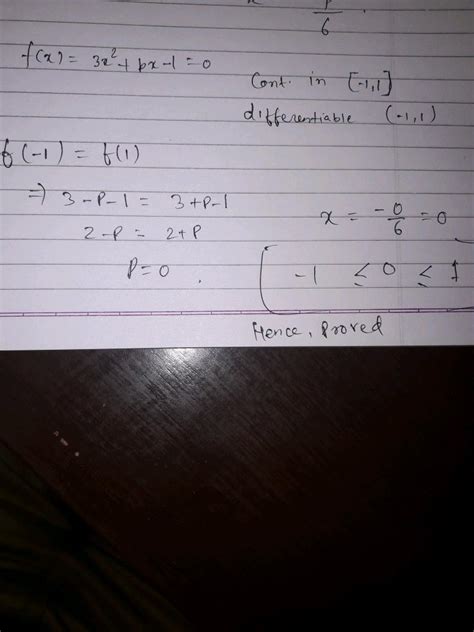 P
6
f(x) = 3x² + px - 1 = 0
Cont. in [-1,1]
differentiable (-1,1)
f(-1) = f(1)
⇒ 3-P-1 = 3+P-1
2-P = 2+P
P=0.
x = -0/6 = 0
-1 ≤ 0 ≤ 1
Hence, Proved